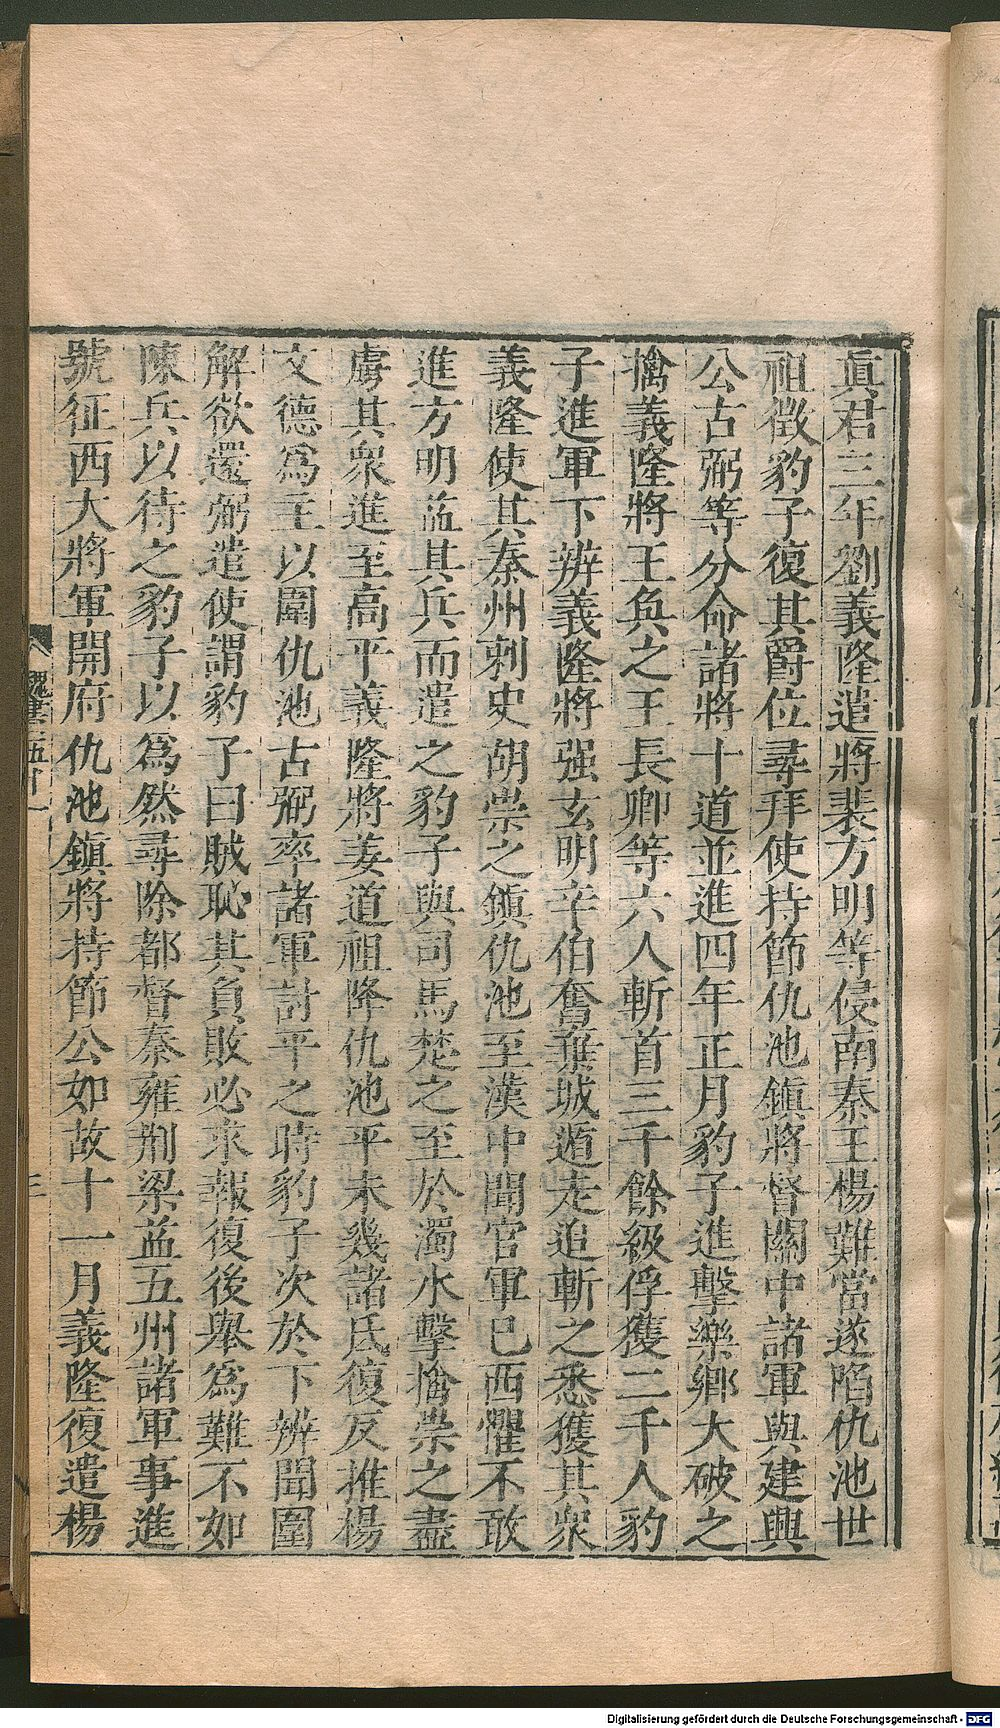 眞君三年劉義隆遣將裴方明等侵南秦王楊難當遂陷仇池世
祖徵豹子復其爵位尋拜使持節仇池鎮將督關中諸軍與建興
公古弼等分命諸將十道並進四年正月豹子進擊樂鄉大破之
擒義隆將王奐之王長卿等六人斬首三千餘級俘獲二千人豹
子進軍下辨義隆將强玄明辛伯奮棄城遁走追斬之悉獲其衆
義隆使其秦州刺史胡崇之鎮仇池至漢中聞官軍已西懼不敢
進方明益其兵而遣之豹子與司馬楚之至於濁水擊擒崇之盡
虜其衆進至高平義隆將姜道祖降仇池平未幾諸氐復反推楊
文德爲主以圍仇池古弼率諸軍討平之時豹子次於下辨聞圍
解欲還弼遣使謂豹子曰賊恥其負敗必求報復後舉爲難不如
陳兵以待之豹子以爲然尋除都督秦雍荆梁益五州諸軍事進
號征西大將軍開府仇池鎮將持節公如故十一月義隆復遣楊
魏書五十一
三
Digitalisierung gefördert durch die Deutsche Forschungsgemeinschaft - DFG